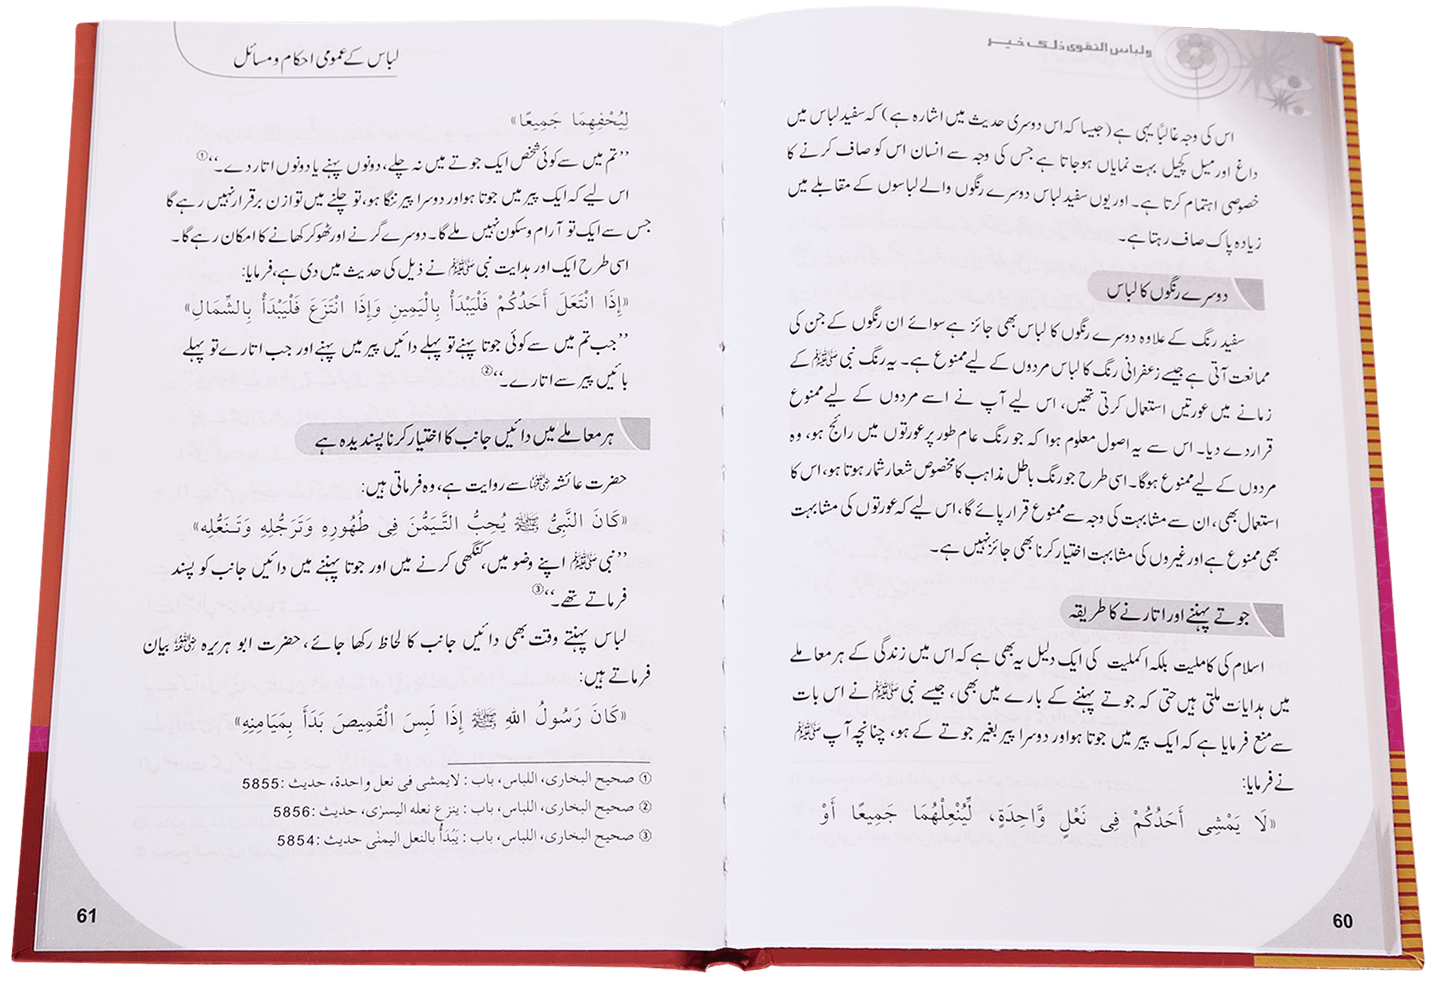 ولباس التقوى ذلك خير
اس کی وجہ غالبًا یہی ہے (جیسا کہ اس دوسری حدیث میں اشارہ ہے) کہ سفید لباس میں
داغ اور میل کچیل بہت نمایاں ہو جاتا ہے جس کی وجہ سے انسان اس کو صاف کرنے کا
خصوصی اہتمام کرتا ہے۔ اور یوں سفید لباس دوسرے رنگوں والے لباسوں کے مقابلے میں
زیادہ پاک صاف رہتا ہے۔
دوسرے رنگوں کا لباس
سفید رنگ کے علاوہ دوسرے رنگوں کا لباس بھی جائز ہے سوائے ان رنگوں کے جن کی
ممانعت آتی ہے جیسے زعفرانی رنگ کا لباس مردوں کے لیے ممنوع ہے۔ یہ رنگ نبی ﷺ کے
زمانے میں عورتیں استعمال کرتی تھیں، اس لیے آپ نے اسے مردوں کے لیے ممنوع
قرار دے دیا۔ اس سے یہ اصول معلوم ہوا کہ جو رنگ عام طور پر عورتوں میں رائج ہو، وہ
مردوں کے لیے ممنوع ہوگا۔ اسی طرح جو رنگ باطل مذاہب کا مخصوص شعار شمار ہوتا ہو، اس کا
استعمال بھی، ان سے مشابہت کی وجہ سے ممنوع قرار پائے گا، اس لیے کہ عورتوں کی مشابہت
بھی ممنوع ہے اور غیروں کی مشابہت اختیار کرنا بھی جائز نہیں ہے۔
جوتے پہننے اور اتارنے کا طریقہ
اسلام کی کاملیت بلکہ اکملیت کی ایک دلیل یہ بھی ہے کہ اس میں زندگی کے ہر معاملے
میں ہدایات ملتی ہیں حتی کہ جوتے پہننے کے بارے میں بھی، جیسے نبی ﷺ نے اس بات
سے منع فرمایا ہے کہ ایک پیر میں جوتا ہو اور دوسرا پیر بغیر جوتے کے ہو، چنانچہ آپ ﷺ
نے فرمایا:
«لَا يَمْشِى أَحَدُكُمْ فِى نَعْلٍ وَّاحِدَةٍ، لِّيُنْعِلْهُمَا جَمِيعًا أَوْ
60
لباس کے عمومی احکام و مسائل
لِيُحْفِهِمَا جَمِيعًا»
’’تم میں سے کوئی شخص ایک جوتے میں نہ چلے، دونوں پہنے یا دونوں اتار دے۔‘‘①
اس لیے کہ ایک پیر میں جوتا ہو اور دوسرا پیر ننگا ہو، تو چلنے میں توازن برقرار نہیں رہے گا
جس سے ایک تو آرام وسکون نہیں ملے گا۔ دوسرے گرنے اور ٹھوکر کھانے کا امکان رہے گا۔
اسی طرح ایک اور ہدایت نبی ﷺ نے ذیل کی حدیث میں دی ہے، فرمایا:
«إِذَا انْتَعَلَ أَحَدُكُمْ فَلْيَبْدَأْ بِالْيَمِينِ وَإِذَا انْتَزَعَ فَلْيَبْدَأْ بِالشِّمَالِ»
’’جب تم میں سے کوئی جوتا پہنے تو پہلے دائیں پیر میں پہنے اور جب اتارے تو پہلے
بائیں پیر سے اتارے۔‘‘②
ہر معاملے میں دائیں جانب کا اختیار کرنا پسندیدہ ہے
حضرت عائشہ رضی اللہ عنہا سے روایت ہے، وہ فرماتی ہیں:
«كَانَ النَّبِىُّ ﷺ يُحِبُّ التَّيَمُّنَ فِى طُهُورِهِ وَتَرَجُّلِهِ وَتَنَعُّلِهِ»
’’نبی ﷺ اپنے وضو میں، کنگھی کرنے میں اور جوتا پہننے میں دائیں جانب کو پسند
فرماتے تھے۔‘‘③
لباس پہنتے وقت بھی دائیں جانب کا لحاظ رکھا جائے، حضرت ابو ہریرہ رضی اللہ عنہ بیان
فرماتے ہیں:
«كَانَ رَسُولُ اللهِ ﷺ إِذَا لَبِسَ الْقَمِيصَ بَدَأَ بِمَيَامِنِهِ»
① صحیح البخاری، اللباس، باب: لایمشی فی نعل واحدة، حدیث: 5855
② صحیح البخاری، اللباس، باب: ینزع نعله الیسرٰی، حدیث: 5856
③ صحیح البخاری، اللباس، باب: یَبْدَأُ بالنعل الیمنٰی حدیث: 5854
61